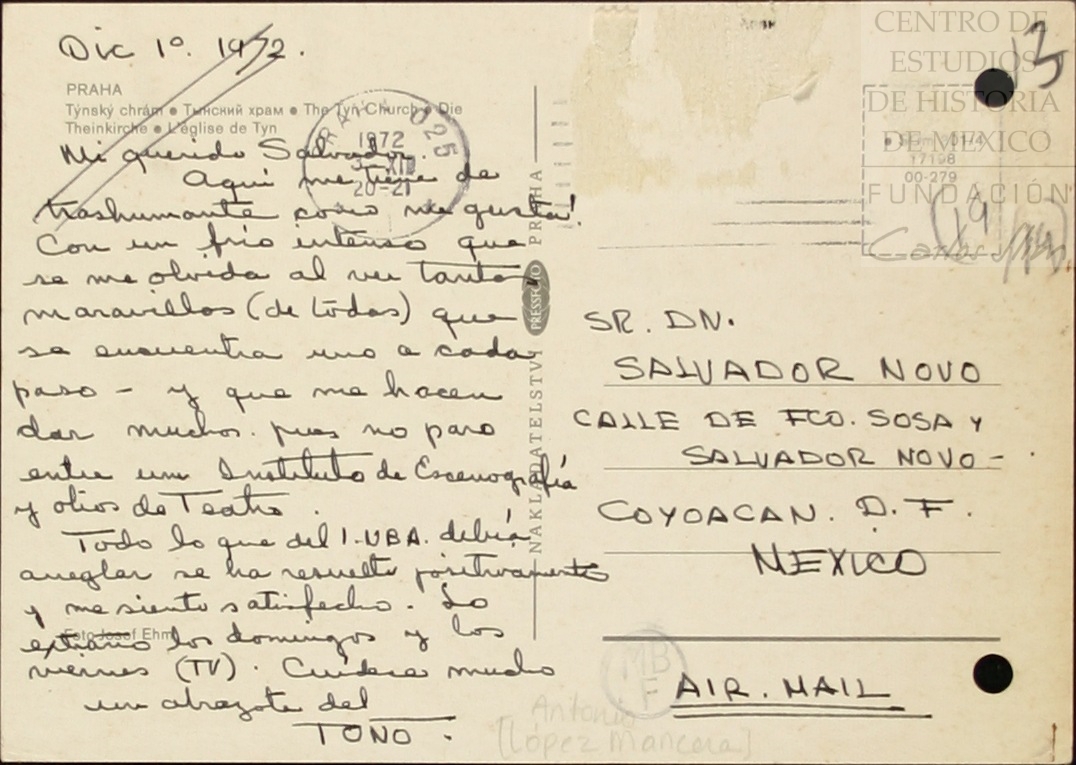 Dic 1º. 1972.
PRAHA
Týnský chrám • Тынский храм • The Týn Church • Die
Theinkirche • L'église de Tyn
Mi querido Salvador.
Aquí me tiene de
trashumante como me gusta!
Con un frío intenso que
se me olvida al ver tantas
maravillas (de todas) que
se encuentra uno a cada
paso - y que me hacen
dar muchos. pues no paro
entre un Instituto de Escenografía
y otros de Teatro.
Todo lo que del I.UBA. debía
arreglar se ha resuelto positivamente
y me siento satisfecho. Lo
extraño los domingos y los
viernes (TV). Cuídese mucho
un abrazote del
TOÑO.
Foto Josef Ehm
PRAHA 025
1972
XII
20-21
NAKLADATELSTVÍ PRESSFOTO PRAHA
CENTRO DE
ESTUDIOS
DE HISTORIA
DE MEXICO
FUNDACIÓN
13
17198
00-279
(19
Carlos
SR. DN.
SALVADOR NOVO
CALLE DE FCO. SOSA Y
SALVADOR NOVO-
COYOACAN. D. F.
MEXICO
AIR. MAIL
MB
F
Antonio
[López Mancera]